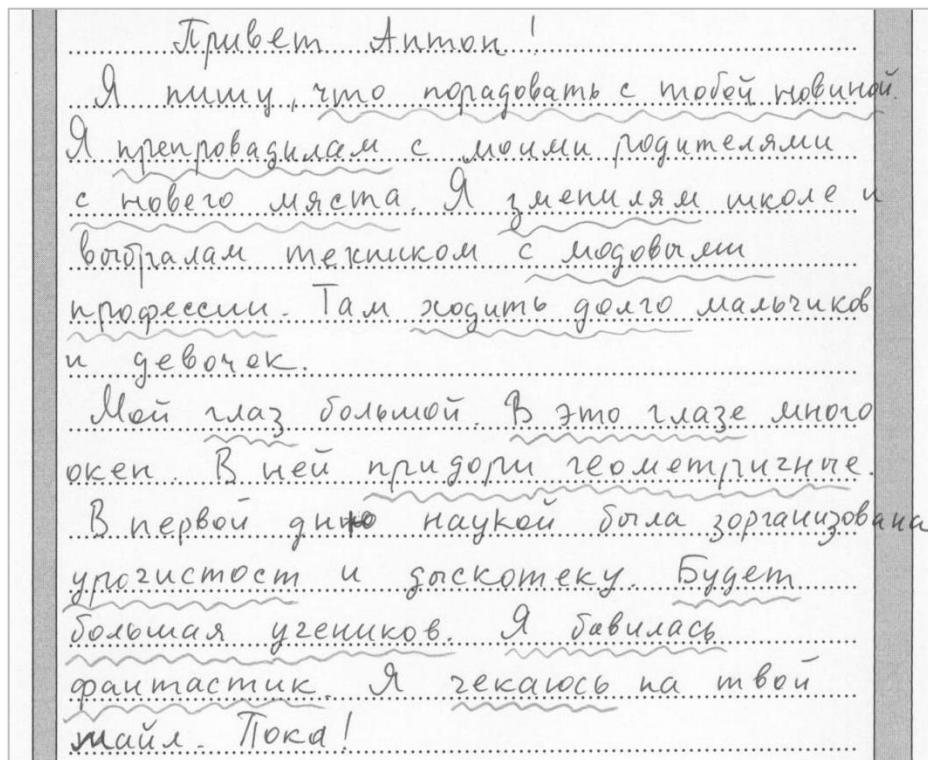 Привет Антон!
Я пишу, что порадовать с тобей новиной.
Я препровадилам с моими родителями
с новего мяста. Я зменилям школе и
выбралам техником с модовыми
профессии. Там ходить долго мальчиков
и девочек.
Мой глаз большой. В это глазе много
окен. В ней придори геометричные.
В первой дню наукой была зорганизована
урочистост и дыскотеку. Будет
большая учеников. Я бавилась
фантастик. Я чекаюсь на твой
майл. Пока!